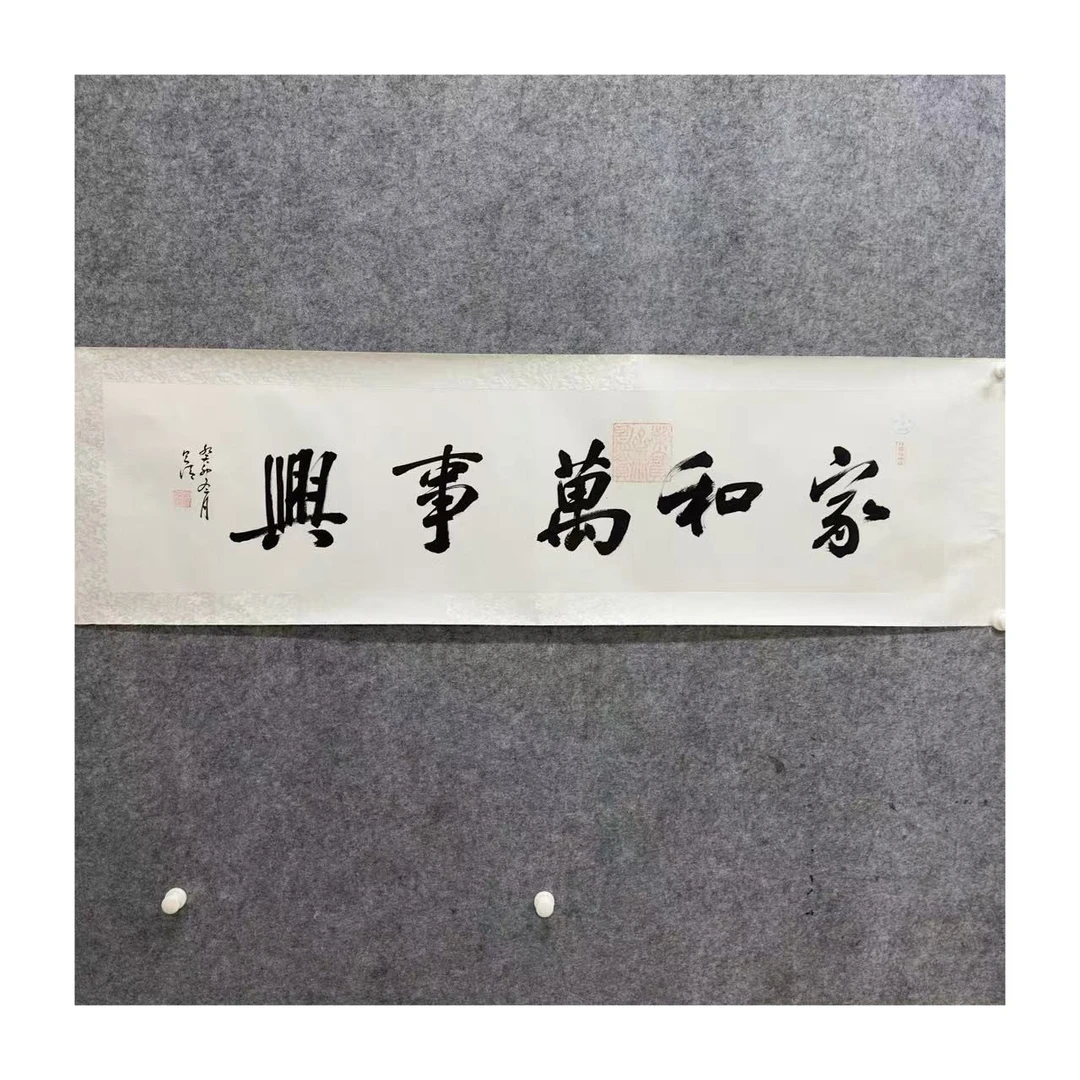 家和萬事興
癸卯冬月